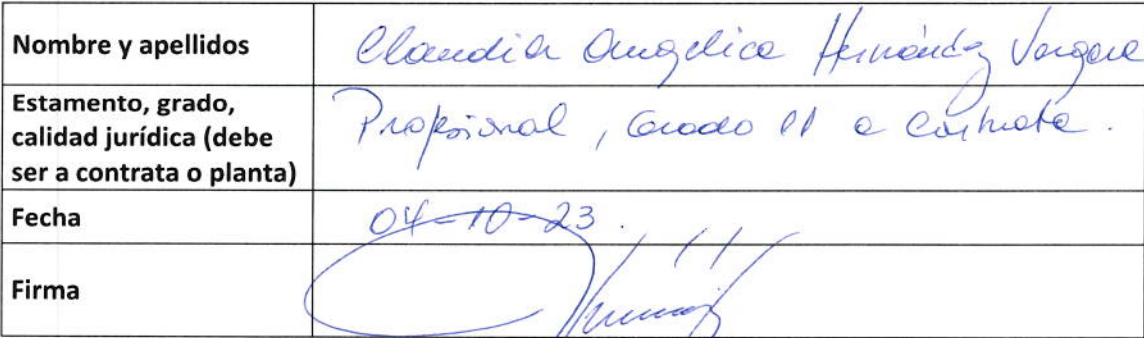 Nombre y apellidos
Claudia Angelica Hernández Vergara
Estamento, grado,
calidad jurídica (debe
ser a contrata o planta)
Profesional, Grado 11 a Contrata.
Fecha
04-10-23.
Firma